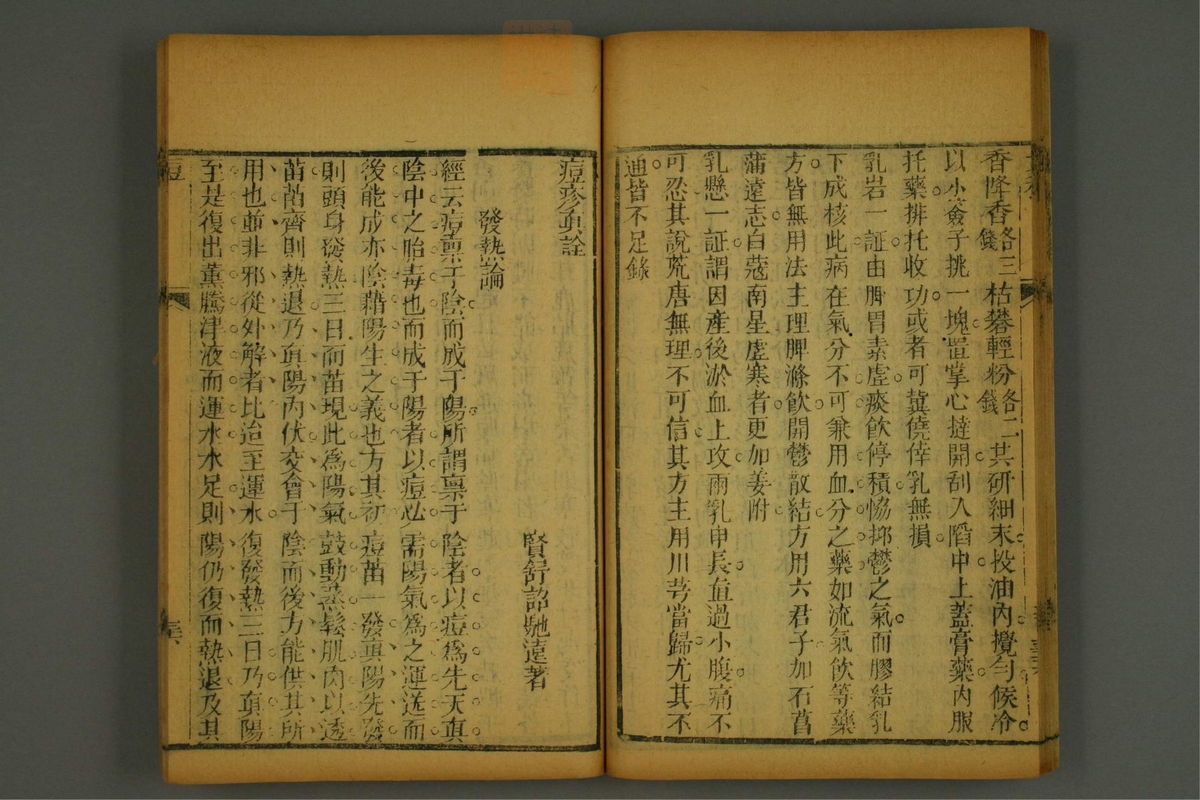 香降香各三錢枯礬輕粉各二錢共研細末投油內攪勻候冷
以小簽子挑一塊置掌心撻開刮入䧟中上蓋膏藥內服
托藥排托收功或者可冀僥倖乳無損
乳岩一証由脾胃素虛痰飲停積恊抑鬱之氣而膠結乳
下成核此病在氣分不可兼用血分之藥如流氣飲等藥
方皆無用法主理脾滌飲開鬱散結方用六君子加石菖
蒲遠志白蔻南星虛寒者更加姜附
乳懸一証謂因產後淤血上攻兩乳申長直過小腹痛不
可忍其說荒唐無理不可信其方主用川芎當歸尤其不
通皆不足錄
痘疹真詮
賢舒詔馳遠著
發熱論
經云痘禀于陰而成于陽所謂禀于陰者以痘爲先天真
陰中之胎毒也而成于陽者以痘必需陽氣爲之運送而
後能成亦陰藉陽生之義也方其初痘苗一發真陽先發
則頭身發熱三日而苗現此爲陽氣鼓動蒸鬆肌肉以透
苗苗齊則熱退乃真陽內伏交會于陰而後方能供其所
用也並非邪從外解者比迨至運水復發熱三日乃真陽
至是復出薰騰津液而運水水足則陽仍復而熱退及其
痘
三六